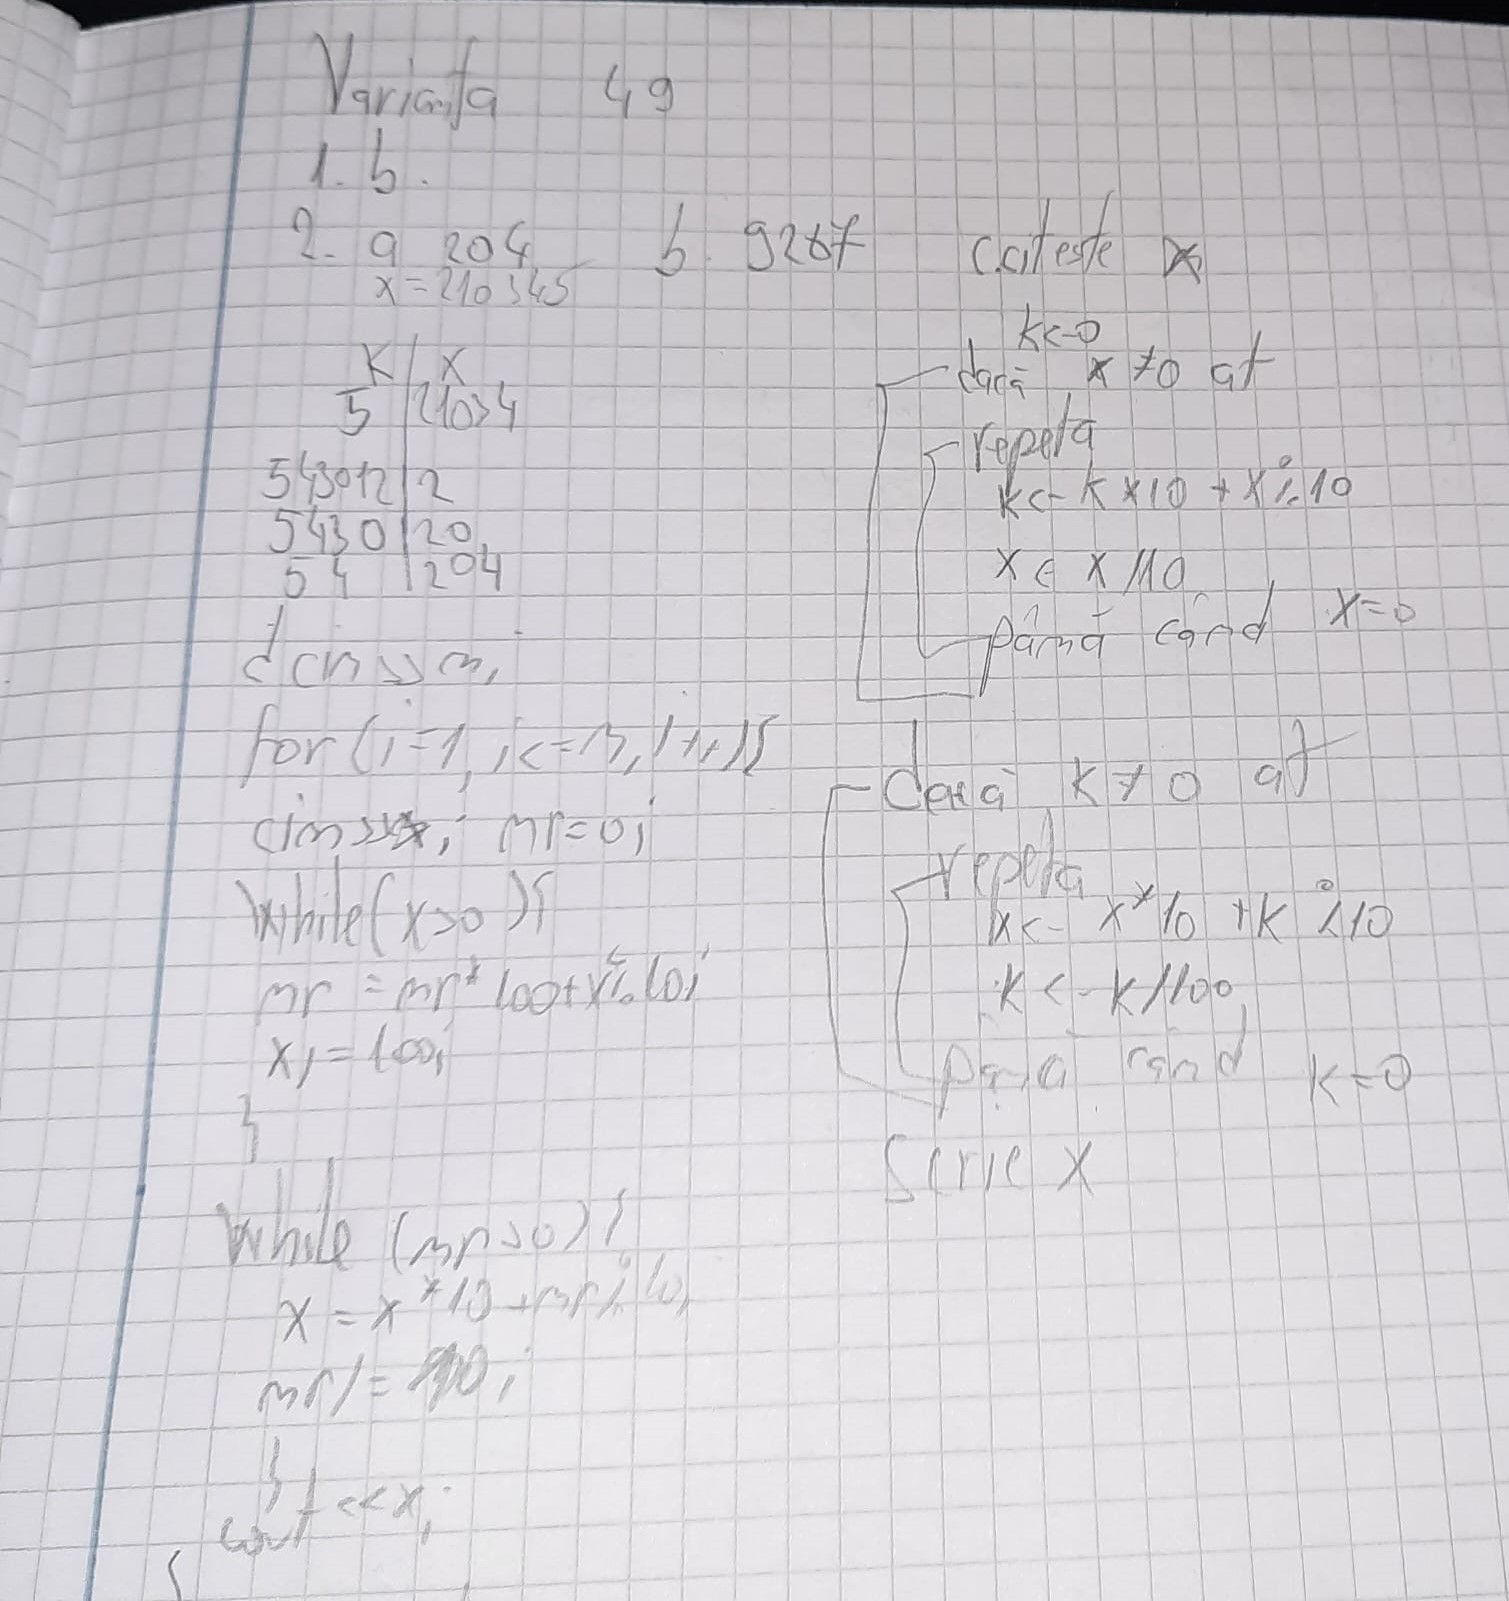 Varianta 49
1. b.
2. a 204 b. 9267
x=210345
K x
5 21034
543012 2
5430 20
54 204
d cin>>n;
for(i=1; i<=n; i++){
cin>>x; nr=0;
while(x>0){
nr = nr*100+x%10;
x/=100;
}
while (nr>0){
x = x*10+nr%10;
nr/=10;
}
cout<<x;
citeste x
k<-0
dacă x≠0 at
repetă
k<- k*10 + x%10
x← x/10
până când x=0
dacă k≠0 at
repetă
x<- x*10 +k%10
k<-k/100
până când k=0
Scrie x